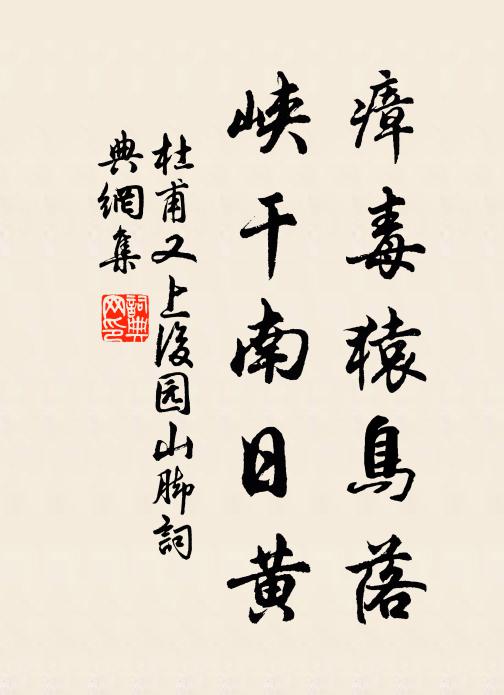 瘴毒猿鳥落
峡干南日黄
杜甫又上後园山脚詞
典網集
詞典
网印